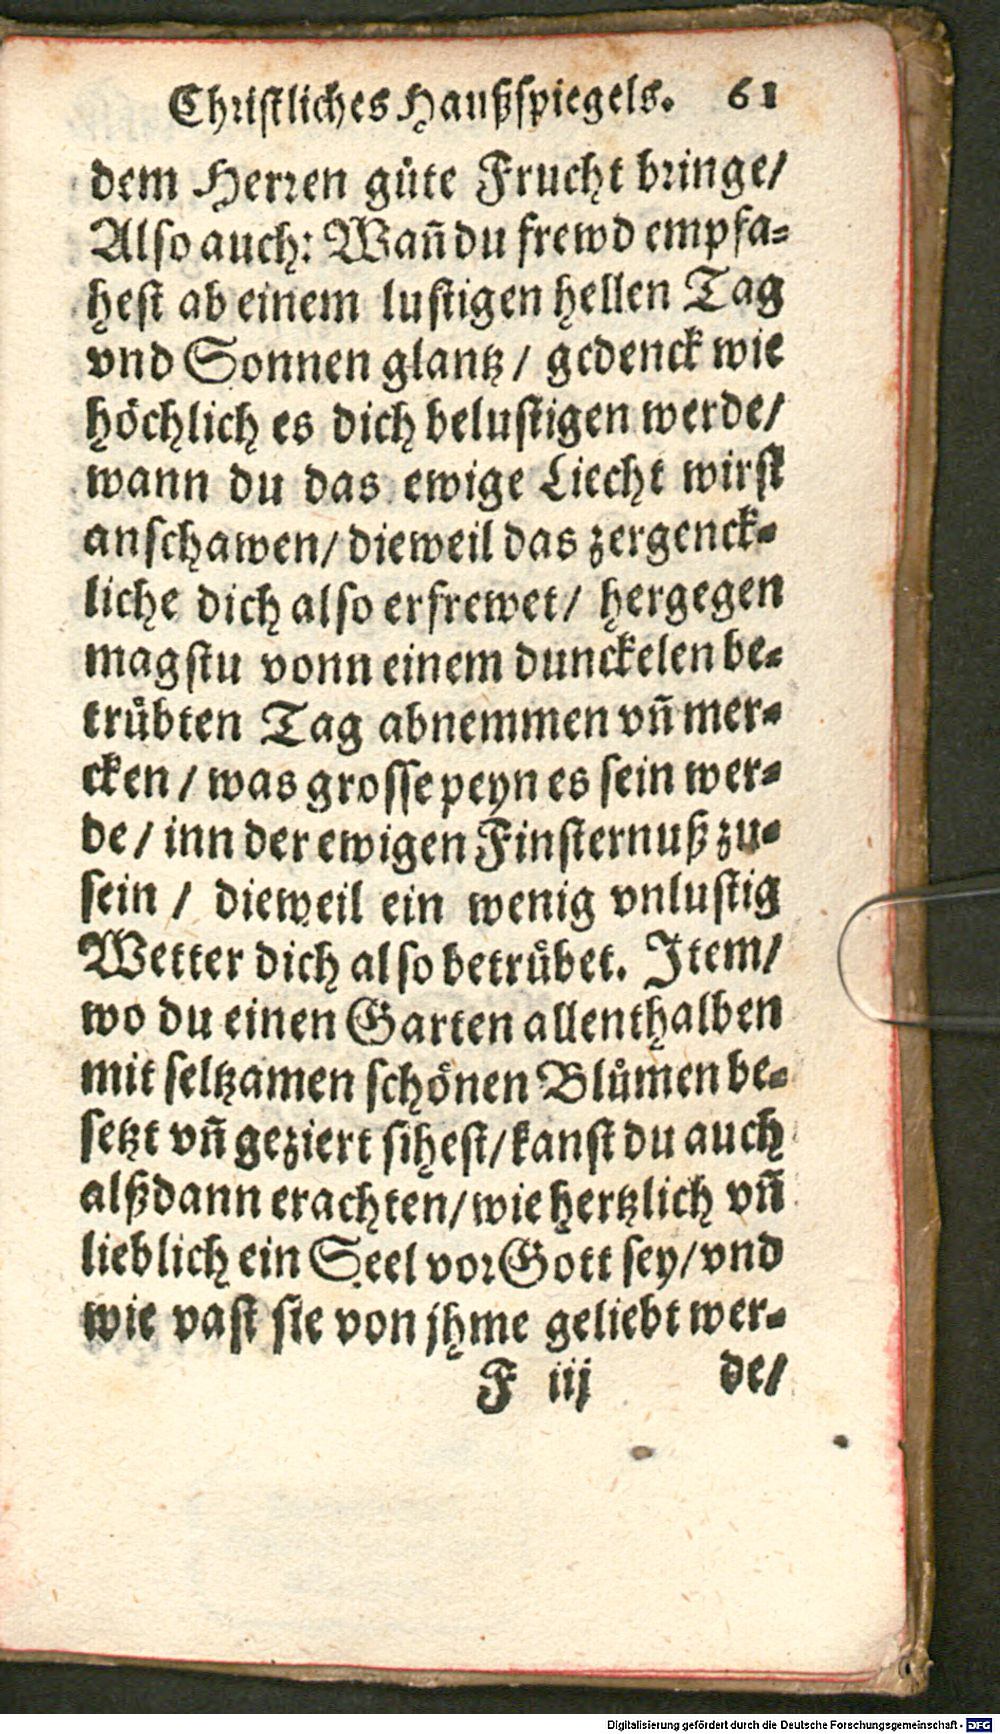 Chriſtliches Haußſpiegels. 61
dem Herꝛen guͤte Frucht bꝛinge/
Alſo auch: Wañ du frewd empfa⸗
heſt ab einem luſtigen hellen Tag
vnd Sonnen glantz/ gedenck wie
hoͤchlich es dich beluſtigen werde/
wann du das ewige Liecht wirſt
anſchawen/ dieweil das zergenck⸗
liche dich alſo erfrewet/ hergegen
magſtu vonn einem dunckelen be⸗
truͤbten Tag abnemmen vñ mer⸗
cken/ was groſſe peyn es ſein wer⸗
de/ inn der ewigen Finſternuß zu⸗
ſein/ dieweil ein wenig vnluſtig
Wetter dich alſo betruͤbet. Item/
wo du einen Garten allenthalben
mit ſeltzamen ſchoͤnen Bluͦmen be⸗
ſetzt vñ geziert ſiheſt/ kanſt du auch
alßdann erachten/ wie hertzlich vñ
lieblich ein Seel voꝛ Gott ſey/ vnd
wie vaſt ſie von jhme geliebt wer⸗
F iij de/
Digitalisierung gefördert durch die Deutsche Forschungsgemeinschaft - DFG